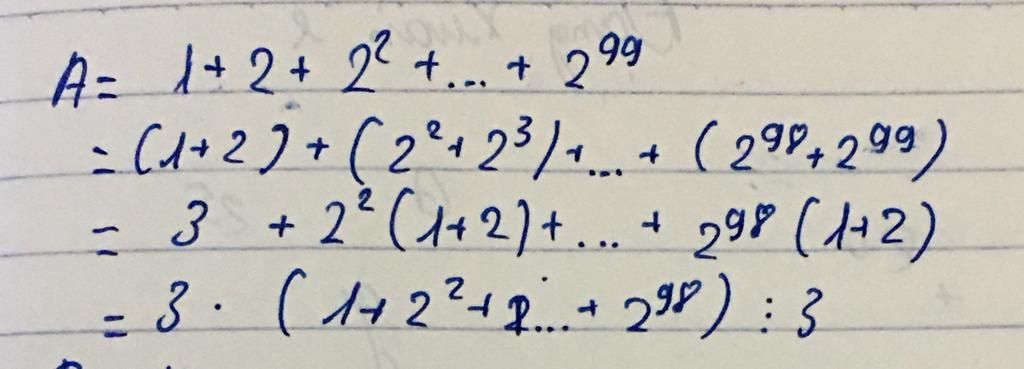 A = 1 + 2 + 2² + ... + 2⁹⁹
= (1 + 2) + (2² + 2³) + ... + (2⁹⁸ + 2⁹⁹)
= 3 + 2² (1 + 2) + ... + 2⁹⁸ (1 + 2)
= 3 . (1 + 2² + ... + 2⁹⁸) ⋮ 3